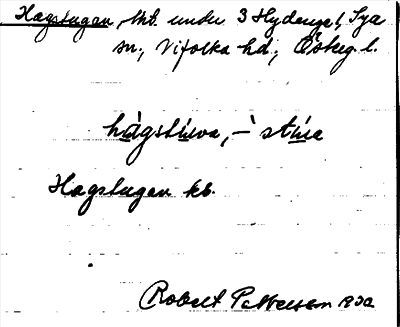 Hagstugan, lht. under 3 Hydinge, Sya
sn., Vifolka hd., Östug. l.
hàgstùwa, -ˋ stùa
Hagstugan kb.
Robert Pettersson 1932